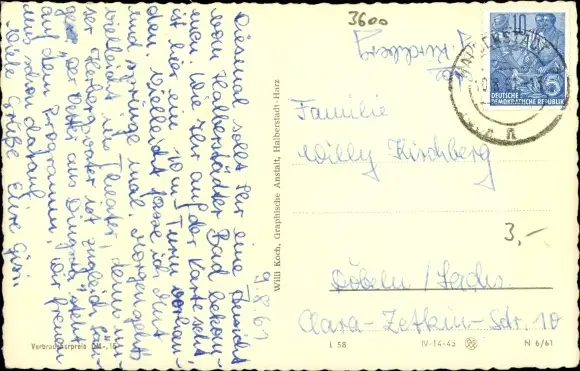 9.8.61
Diesmal sollt Ihr eine Ansicht
vom Halberstädter Bad bekom-
men. Wie Ihr auf der Karte seht,
ist hier ein 10 m Turm vorhan-
den. Vielleicht fasse ich Mut
und springe mal. Morgen geht's
vielleicht ins Theater, denn un-
ser Herbergsvater ist zugleich
"Der Vetter aus Dingsda" steht
auf dem Programm. Wir freuen
uns schon darauf.
Viele Grüße Eure
Verbraucherpreis DM -,15
Willi Koch, Graphische Anstalt, Halberstadt-Harz
3600
Kirchberg
10
5
DEUTSCHE
DEMOKRATISCHE REPUBLIK
HALBERSTADT
Familie
Willy Kirchberg
3,-
Döbeln / Sachs.
Clara-Zetkin-Str. 10
L 58
IV-14-45
N 6/61